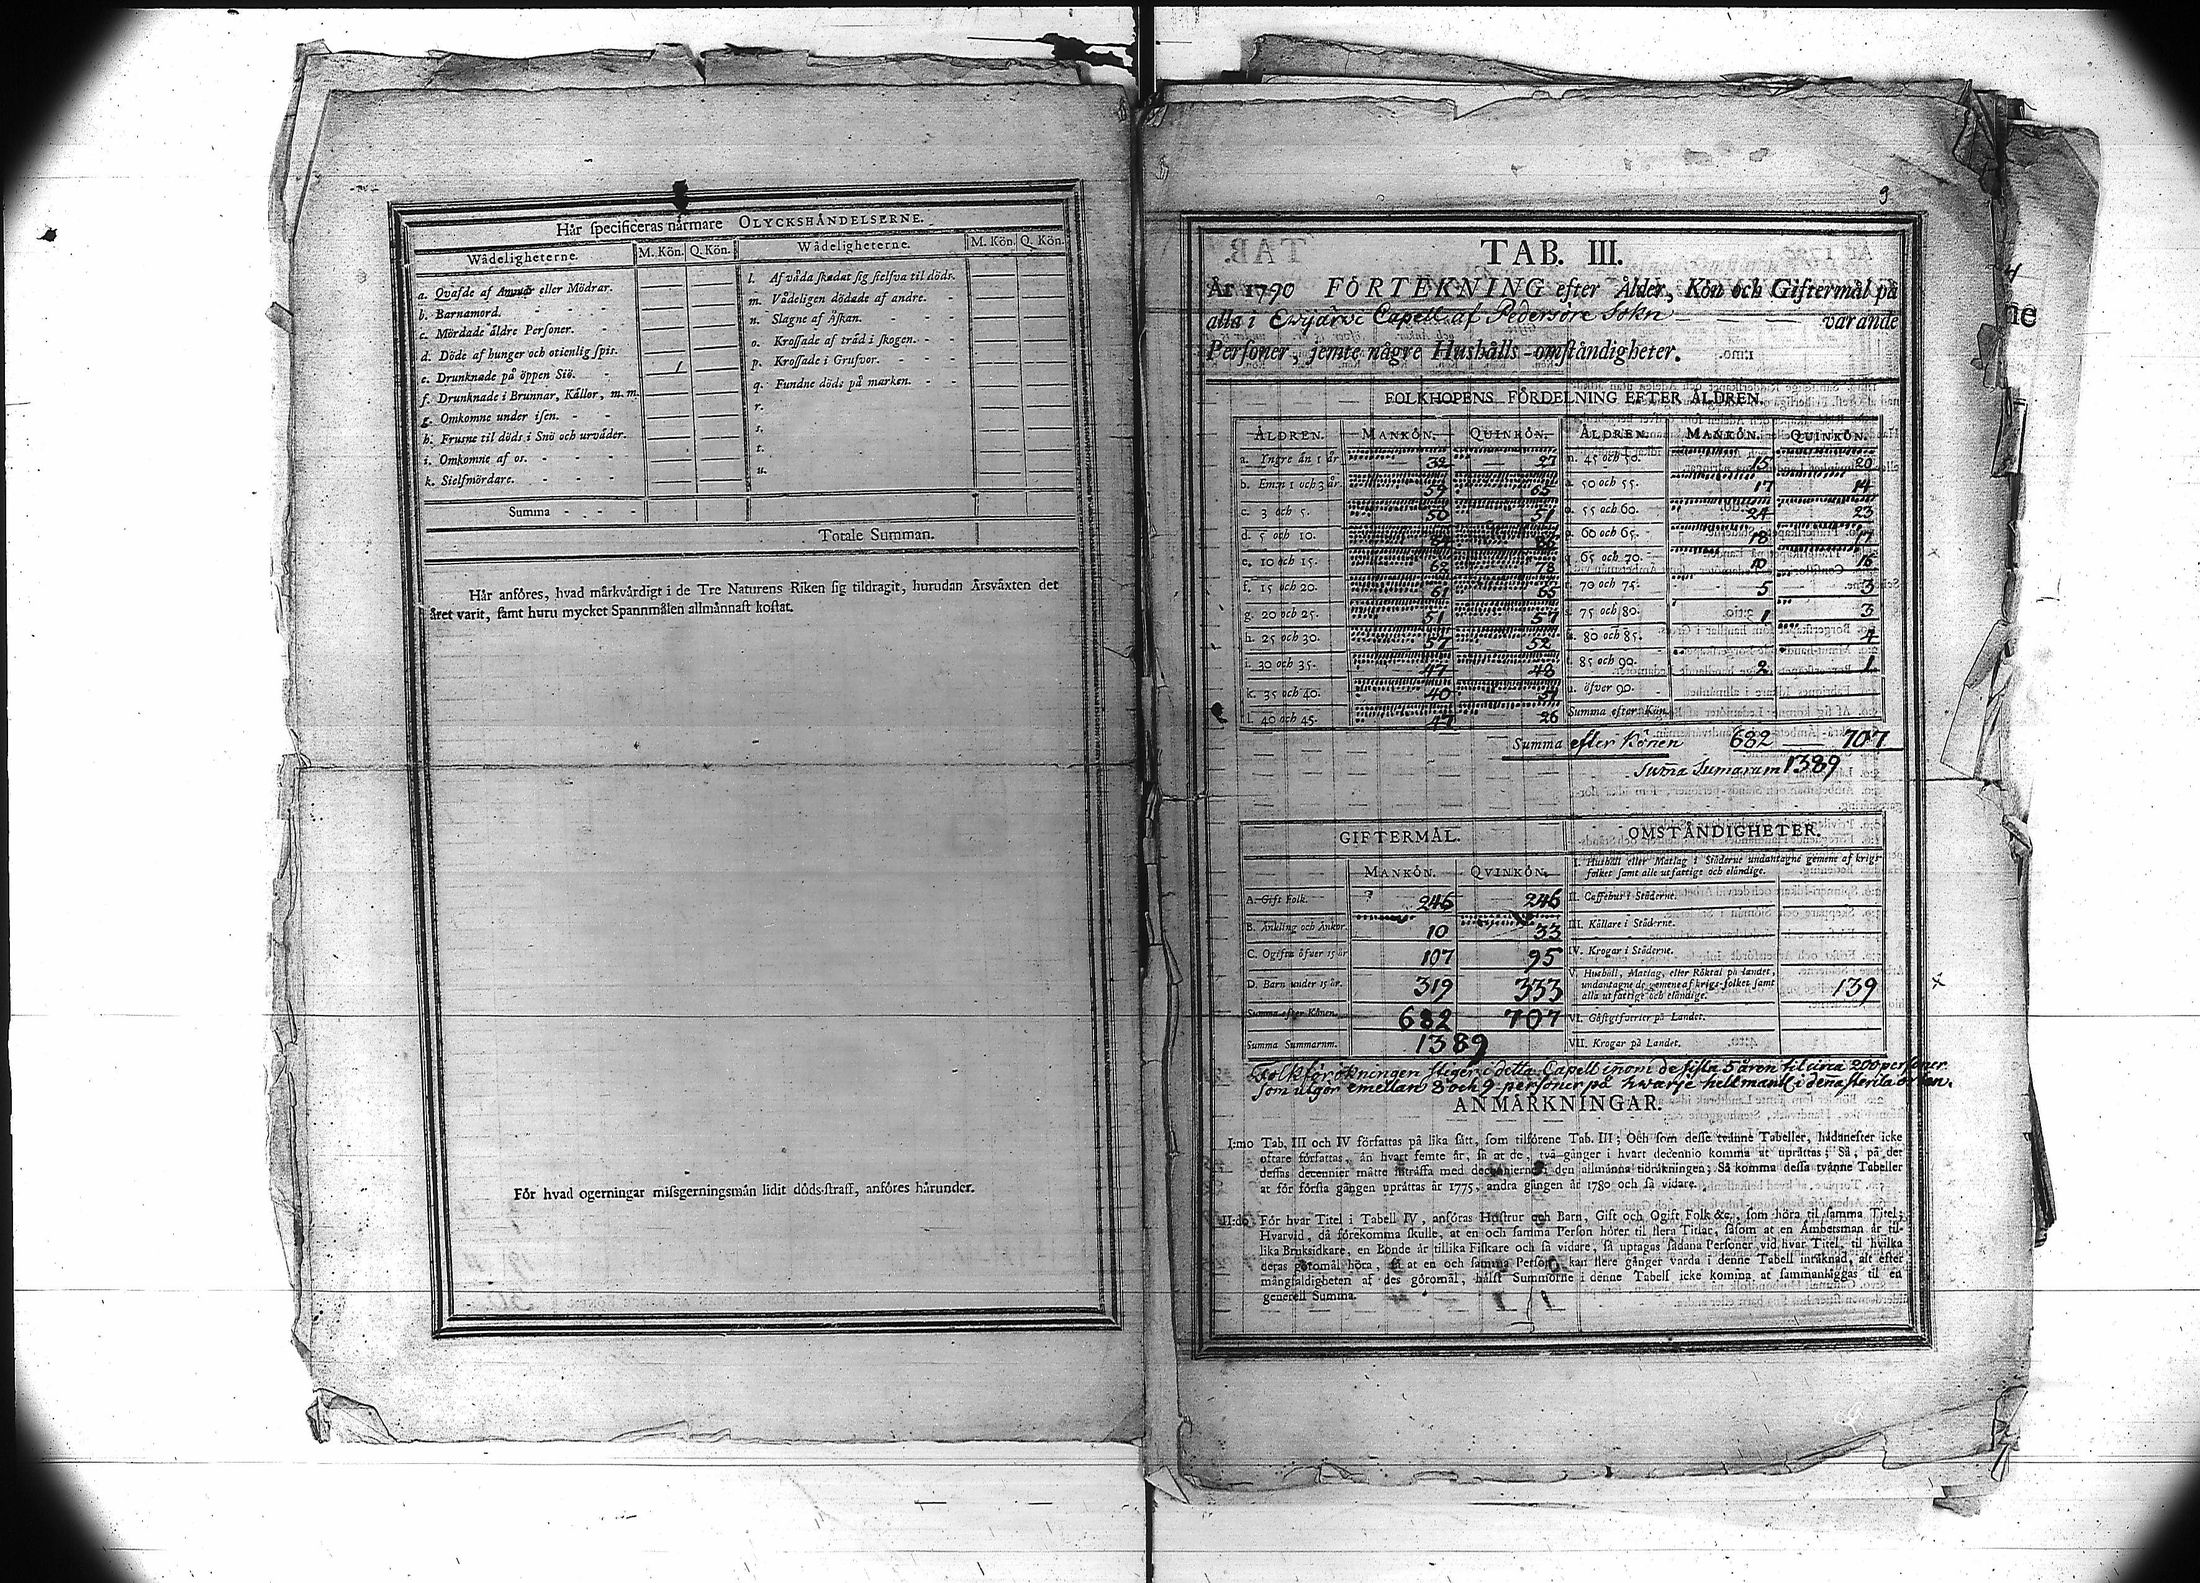 Hår specificeras nårmare OLYCKSHÅNDELSERNE.
Wådeligheterne. M. Kön. Q. Kön. Wådeligheterne. M. Kön. Q. Kön.
a. Qvafde af Ammor eller Mödrar.
b. Barnamord.
c. Mördade åldre Personer.
d. Döde af hunger och otienlig spis.
e. Drunknade på öppen Siö. 1
f. Drunknade i Brunnar, Kållor, m. m.
g. Omkomne under isen.
h. Frusne til döds i Snö och urvåder.
i. Omkomne af os.
k. Sielfmördare.
l. Af våda skadat sig sielfva til döds.
m. Vådeligen dödade af andre.
n. Slagne af Åskan.
o. Krossade af tråd i skogen.
p. Krossade i Grufvor.
q. Fundne döds på marken.
r.
s.
t.
u.
Summa
Totale Summan.
Hår anföres, hvad mårkvårdigt i de Tre Naturens Riken sig tildragit, hurudan Årsvåxten det
året varit, samt huru mycket Spannmålen allmånnast kostat.
För hvad ogerningar missgerningsmån lidit döds-straff, anföres hårunder.
9
TAB. III.
År 1790 FÖRTEKNING efter Ålder, Kön och Giftermål på
alla i Ewijärvi Capell af Pedersöre Sokn varande
Personer, jemte någre Hushålls-omståndigheter.
FOLKHOPENS FÖRDELNING EFTER ÅLDREN.
ÅLDREN. MANKÖN. QUINKÖN. ÅLDREN. MANKÖN. QUINKÖN.
a. Yngre ån 1 år 32 27 n. 45 och 50. 15 20
b. Em:n 1 och 3 år. 59 65 50 och 55. 17 14
c. 3 och 5. 50 51 55 och 60. 24 23
d. 5 och 10. 60 och 65. 18 17
e. 10 och 15. 78 65 och 70. 10 16
f. 15 och 20. 61 65 70 och 75. 5 3
g. 20 och 25. 51 57 75 och 80. 1 3
h. 25 och 30. 57 52 80 och 85. 4
i. 30 och 35. 47 48 85 och 90. 2 1
k. 35 och 40. 40 u. öfver 90.
l. 40 och 45. 47 26 Summa efter Kön.
Summa efter Könen 682 707
Suma Sumarum 1389
GIFTERMÅL. OMSTÅNDIGHETER.
MANKÖN. QVINKÖN.
I. Hushåll eller Matlag i Ståderne undantagne gemene af krigsfolket samt alle utfattige och elåndige.
A. Gift Folk. 246 246 II. Caffehus i Ståderne.
B. Ånkling och Ånkor. 10 33 III. Kållare i Ståderne.
C. Ogifta öfver 15 år 107 95 IV. Krogar i Ståderne.
D. Barn under 15 år. 319 333 V. Hushåll, Matlag, eller Röktal på landet, undantagne de gemene af krigs-folket samt alla utfattige och elåndige. 139
Summa efter Könen. 682 707 VI. Gåstgifverier på Landet.
Summa Summarum. 1389 VII. Krogar på Landet.
Folkförökningen stiger i detta Capell inom de sista 5 åren til circa 200 personer
som utgör emellan 8 och 9 personer på hvarje helt mantl i dena sterila orten.
ANMÅRKNINGAR.
I:mo Tab. III och IV författas på lika sått, som tilförene Tab. III; Och som desse tvånne Tabeller, hådanefter icke
oftare författas, ån hvart femte år, så at de, två gånger i hvart decennio komma at uprättas; Så, på det
dessas decennier måtte intråffa med decennierne i den allmånna tidråkningen; Så komma dessa tvånne Tabeller
at för första gången upråttas år 1775, andra gången år 1780 och så vidare.
II:do För hvar Titel i Tabell IV, anföras Hustrur och Barn, Gift och Ogift Folk &c., som höra til samma Titel;
Hvarvid, då förekomma skulle, at en och samma Person hörer til flera Titlar, såsom at en Åmbetsman år til-
lika Bruksidkare, en Bonde år tillika Fiskare och så vidare, så uptagas sådana Personer vid hvar Titel, til hvilka
deras göromål höra, så at en och samma Person kan flere gånger varda i denne Tabell intåknad, alt efter
mångfaldigheten af des göromål, hålst Summorne i denne Tabell icke komma at sammanlåggas til en
generell Summa.